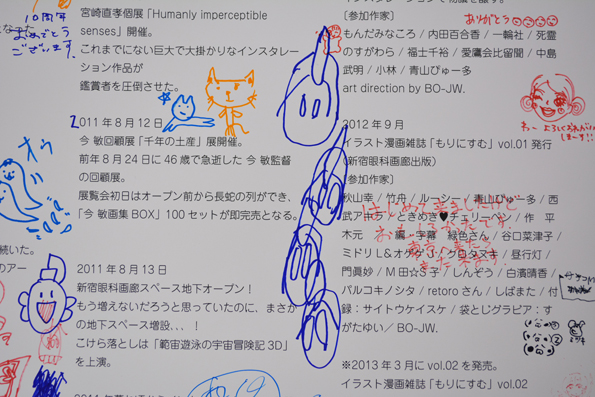 宮崎直孝個展「Humanly imperceptible
senses」開催。
これまでにない巨大で大掛かりなインスタレー
ション作品が
鑑賞者を圧倒させた。
2011年8月12日
今 敏回顧展「千年の土産」展開催。
前年8月24日に46歳で急逝した今 敏監督
の回顧展。
展覧会初日はオープン前から長蛇の列ができ、
「今 敏画集BOX」100セットが即完売となる。
2011年8月13日
新宿眼科画廊スペース地下オープン！
もう増えないだろうと思っていたのに、まさか
の地下スペース増設．．．！
こけら落としは「範宙遊泳の宇宙冒険記3D」
を上演。
10周年
おめでとう
ございます
続いた。
のアー
オウ
[参加作家]
もんだみなころ / 内田百合香 / 一輪社 / 死霊
のすがわら / 福士千裕 / 愛鷹会比留間 / 中島
武明 / 小林 / 青山びゅー多
art direction by BO-JW.
2012年9月
イラスト漫画雑誌「もりにすむ」vol.01 発行
(新宿眼科画廊出版)
[参加作家]
秋山幸 / 竹舟 / ルーシー / 青山ひゅー多 / 西
武アキラ / ときめき♥チェリーベン / 作 平
木元 / 編 字幕 緑色さん / 谷口菜津子 /
ミドリ
昼行灯 /
門眞妙 / M田☆S子 / しんぞう / 白濱晴香 /
パルコキノシタ / retoro さん / しばまた / 付
録：サイトウケイスケ / 袋とじグラビア：す
がたゆい / BO-JW.
※2013年3月にvol.02を発売。
イラスト漫画雑誌「もりにすむ」vol.02
ありがとう
わー よろしくおねがい
しまーす!!
はじめて来ましたが
おもしろかったです。
東京へ来たら
また来ます。